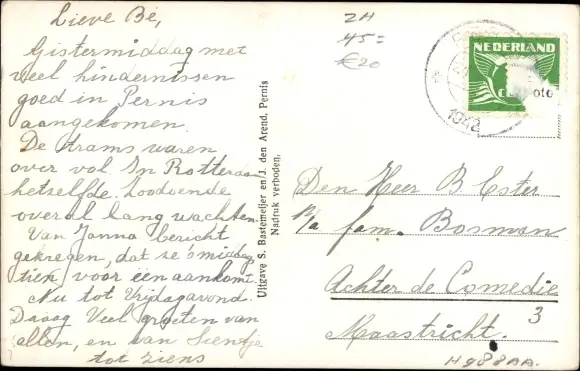 Lieve Bé,
Gistermiddag met
veel hindernissen
goed in Pernis
aangekomen.
De trams waren
over vol. In Rotterdam
hetzelfde. Zoodoende
overal lang wachten.
Van Janna bericht
gekregen, dat ze 's middag
tien voor één aankomt.
Nu tot Vrijdagavond.
Daag Veel groeten van
allen, en van Leentje
tot ziens
Uitgave S. Bastemeijer en J. den Arend, Pernis
Nadruk verboden.
ZH
45=
€20
NEDERLAND
1942
Den Heer B Ester
p/a fam. Bosman
Achter de Comedie
3
Maastricht.
H988AA.